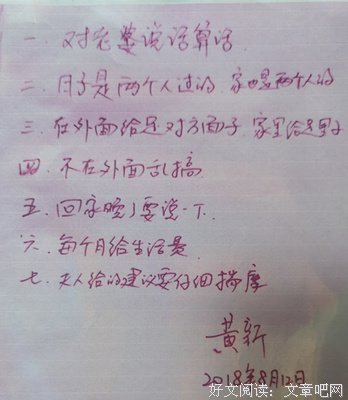 一、对老婆说话算话
二、日子是两个人过的,家也是两个人的
三、在外面给足对方面子,家里给足里子
四、不在外面乱搞
五、回家晚了要说一下
六、每个月给生活费
七、夫人给的建议要仔细揣摩
黄新
2018年8月12日
好文阅读:文章吧网